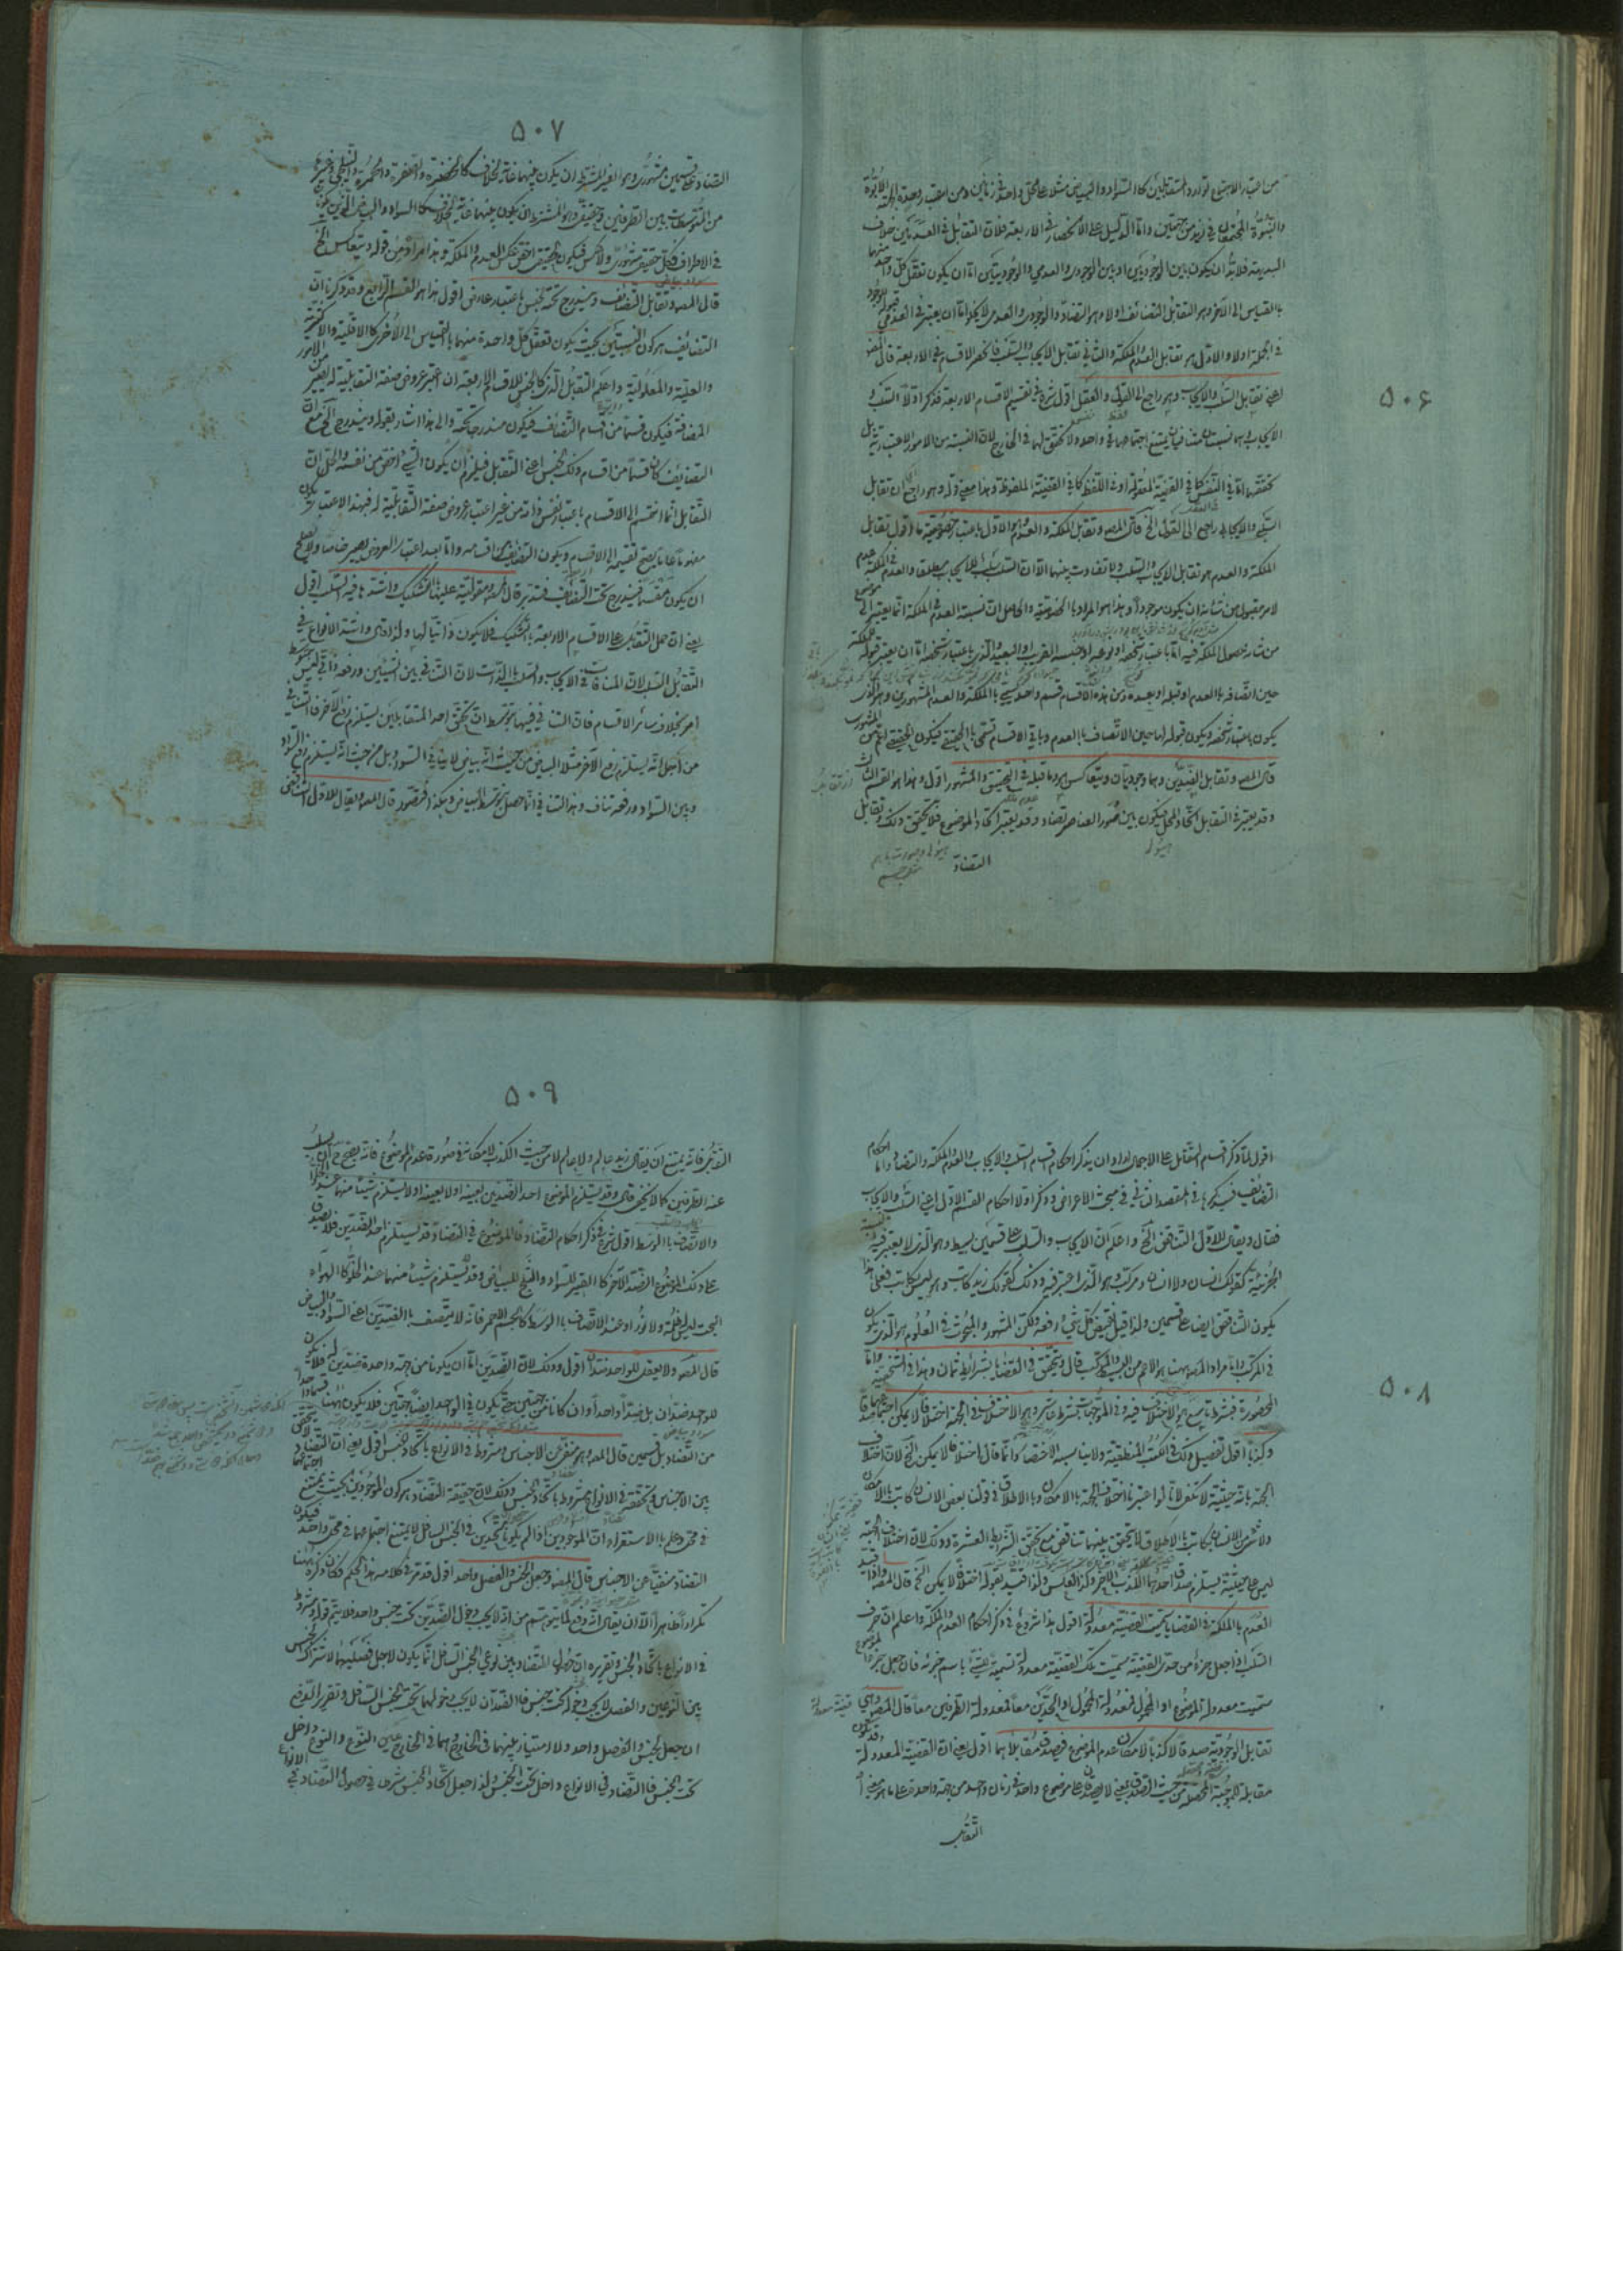 ٥٠۶
من اعتبار الاجتماع توارد المتقابلين كالسواد والبياض مثلا على محل واحد في زمانين ومن اعتبار وحدة الجهة الابوة
والبنوة المجتمعان في زيد من جهتين واما الدليل على الانحصار في الاربعة فلان التقابل في العدميين خلاف
البديهة فلابد ان يكون بين الوجوديين او بين الوجودي والعدمي والوجوديين اما ان يكون تعقل كل واحد منهما
بالقياس الى الآخر وهو التقابل التضائف اولا وهو التضاد والوجودي والعدمي لا يخلو اما ان يعتبر في العدمي قبوله للوجود
في الجملة اولا والاول هو تقابل العدم والملكة والثاني تقابل الايجاب والسلب فانحصر الاقسام في الاربعة قال المص
اعني تقابل السلب والايجاب وهو راجع الى القول والعقل اقول شرع في تقسيم الاقسام الاربعة فذكر اولا السلب و
الايجاب وهما نسبتان متنافيان يمتنع اجتماعهما في واحد ولا تحقق لهما في الخارج لان النسبة من الامور الاعتبارية بل
تحققهما اما في النفس كما في القضية المعقولة او في اللفظ كما في القضية الملفوظة وهذا معنى قوله وهو راجع اي ان تقابل
السلب والايجاب راجع الى القول الخ قال المص وتقابل الملكة والعدم وهو الاول باعتبار خصوصية ما اقول تقابل
الملكة والعدم هو تقابل الايجاب والسلب ولا تفاوت بينهما الا ان السلب سلب الايجاب مطلقا والعدم في الملكة عدم
لامر مقبول من شانه ان يكون موجودا وهذا هو المراد بالخصوصية والحاصل ان نسبة العدم الى الملكة انما يعتبر الى موضوع
من شانه حصول الملكة فيه اما باعتبار شخصه او نوعه او جنسه القريب او البعيد والذي باعتبار شخصه اما ان يعتبر قبوله للملكة
حين اتصافه بالعدم او قبله او بعده ومن هذه الاقسام قسم واحد يسمى بالملكة والعدم المشهورين وهو الذي
يكون باعتبار شخصه ويكون قبوله لها حين الاتصاف بالعدم وباقي الاقسام تسمى بالحقيقي فيكون الحقيقي اعم من المشهوري
قال المص وتقابل الضدين وهما وجوديان ويتعاكس هو وما قبله في التحقيق والمشهور اقول وهذا هو القسم الثالث
وقد يعتبر في التقابل اتحاد المحل فيكون بين صور العناصر تضاد وقد يعتبر اتحاد الموضوع فلا يتحقق ذلك وتقابل
التضاد
٥٠٧
التضاد على قسمين مشهوري وهو الغير المشترط ان يكون بينهما غاية الخلاف كالخضرة والصفرة والحمرة والنيلي وغيرها
من المتوسطات بين الطرفين وحقيقي وهو المشترط ان يكون بينهما غاية الخلاف كالسواد والبياض الذين يكونان
في الاطراف فكل حقيقي مشهوري ولا عكس فيكون الحقيقي اخص بعكس العدم والملكة وهذا مراده من قوله ويتعاكس الخ
قال المص وتقابل التضائف ويندرج تحته الجنس باعتبار عارض اقول هذا هو القسم الرابع وقد ذكرنا ان
التضائف هو كون النسبتين بحيث يكون تعقل كل واحدة منهما بالقياس الى الاخرى كالاقلية والاكثرية
والعلية والمعلولية واعلم ان التقابل الذي كالجنس للاقسام الاربعة ان اعتبر عروض صفة التقابلية له يصير من الامور
المضافة فيكون قسما من اقسام التضائف فيكون مندرجا تحته والى هذا اشار بقوله ويندرج الخ مع ان
التضائف كان قسما من اقسام ذلك الجنس اعني التقابل فيلزم ان يكون الشيء اخص من نفسه والحل ان
التقابل انما انقسم الى الاقسام باعتبار نفس ذاته من غير اعتبار عروض صفة التقابلية له فبهذا الاعتبار يكون
مفهوما عاما يصح تقسيمه الى الاقسام ويكون التضائف من اقسامه واما بعد اعتبار العروض يصير خاصا ولا يصلح
ان يكون مقسما فيندرج تحت التضائف فتدبر قال المص ومقوليته عليها بالتشكيك واشدها فيه السلب اقول
يعني ان حمل التقابل على الاقسام الاربعة بالتشكيك فلا يكون ذاتيا لها واشد الانواع في
التقابل السلب لان المنافات في الايجاب والسلب بالذات لان التنافي بين الشيئين ورفعه ذاتي ليس بتوسط
امر بخلاف سائر الاقسام فان التنافي فيها بتوسط ان تحقق احد المتقابلين يستلزم رفع الآخر فالتنافي
من اجل انه يستلزم رفع الآخر مثلا البياض من حيث انه بياض لا ينافي السواد بل من حيث انه يستلزم رفع السواد
وبين السواد ورفعه تناف وهذا التنافي انما حصل بتوسط البياض وهكذا فتصور قال المص ويقال للاول التناقض
٥٠٨
اقول لما ذكر اقسام التقابل على الاجمال اراد ان يذكر احكام اقسام السلب والايجاب والعدم والملكة والتضاد واما احكام
التضائف فسيذكرها في المقصد الثاني في مبحث الاعراض وذكر اولا احكام القسم الاول اعني السلب والايجاب
فقال ويقال للاول التناقض الخ واعلم ان الايجاب والسلب على قسمين بسيط وهو الذي لا يعتبر فيه نسبة
الجزئية كقولك انسان ولا انسان ومركب وهو الذي اعتبر فيه وذلك كقولك زيد كاتب وهو ليس بكاتب فعلى هذا
يكون التناقض ايضا على قسمين ولذا قيل نقيض كل شيء رفعه ولكن المشهور والمبحوث في العلوم هو الذي يكون
في المركب واما مراد المص ههنا هو الاعم من البسيط والمركب قال ويتحقق في القضايا بشرائط ثمان وهذا في الشخصية واما
المحصورة فبشرط تاسع هو الاختلاف فيه وفي الموجهات بشرط عاشر وهو الاختلاف في الجهة اختلافا لا يمكن اجتماعهما صدقا
وكذبا اقول تفصيل ذلك في الكتب المنطقية ولا يناسبه الاختصار وانما قال اختلافا لا يمكن الخ لان اختلاف
الجهة بانه حيثية لا تكفي لانا لو اعتبرنا اختلاف الجهة بالامكان وبالاطلاق في قولنا بعض الانسان كاتب بالامكان
ولا شيء من الانسان بكاتب بالاطلاق لا يتحقق بينهما تناقض مع تحقق الشرائط العشرة وذلك لان اختلاف الجهة
ليس على حيثية يستلزم صدق احدهما الكذب الاخر وكذا العكس ولذا قيد بقوله اختلافا لا يمكن الخ قال المص واذا قيد
العدم بالملكة في القضايا سميت القضية معدولة اقول هذا شروع في ذكر احكام العدم والملكة واعلم ان حرف
السلب اذا جعل جزءا من حدى القضية سميت تلك القضية معدولة تسمية للشيء باسم جزئه فان جعل جزءا لموضوع
سميت معدولة الموضوع او المحمول فمعدولة المحمول او الجزئين معا فمعدولة الطرفين معا قال المص وهي
تقابل الوجودية صدقا لا كذبا لامكان عدم الموضوع فيصدق مقابلاهما اقول يعني ان القضية المعدولة
مقابلة للموجبة المحصلة من حيث الصدق يعني لا يصدقان على موضوع واحد في زمان واحد من جهة واحدة على ما هو معنى
التقابل
٥٠٩
التقابل فانه يمتنع ان يقال زيد عالم ولا عالم لا من حيث الكذب لامكانه في صورة عدم الموضوع فانه يصح ح ان
عنه الطرفين كما لا يخفى قال وقد يستلزم الموضوع احد الضدين بعينه اولا بعينه اولا يستلزم شيئا منهما عند الخلو
والاتصاف بالوسط اقول شرع في ذكر احكام التضاد فالموضوع في التضاد قد يستلزم احد الضدين فلا يصدق
على ذلك الموضوع الضد الآخر كالقير للسواد والثلج للبياض وقد لا يستلزم شيئا منهما عند الخلو كالهواء
البحت ليس ظلمة ولا نور او عند الاتصاف بالوسط كالجسم الاحمر فانه لا يتصف بالضدين اعني السواد والبياض
قال المص ولا يعقل للواحد ضدان اقول وذلك لان الضدين اما ان يكونا من جهة واحدة ضدين له فلا يكون
للواحد ضدان بل ضدا واحدا وان كانا من جهتين حتى يكون في الواحد ايضا جهتين فلا يكون ههنا قسما واحدا
من التضاد بل قسمين قال المص وهو منفي عن الاجناس ومشروط في الانواع باتحاد الجنس اقول يعني ان التضاد لا يتحقق
بين الاجناس وتحققه في الانواع مشروط باتحاد الجنس وذلك لان حقيقة التضاد هو كون الموجودين بحيث يمتنع اجتماعهما
في محل وعلم بالاستقراء ان الموجودين اذا لم يكونا متحدين في الجنس السافل لا يمتنع اجتماعهما في محل واحد فيكون
التضاد منفيا عن الاجناس قال المص وجعل الجنس والفصل واحد اقول قد مر في كلامه هذا الحكم فكان ذكره ههنا
تكرارا ظاهرا الا ان يقال انه دفع لما يتوهم من انه لا يجب دخول الضدين تحت جنس واحد فلا يتم قوله ومشروط
في الانواع باتحاد الجنس وتقريره ان حصول التضاد بين نوعي الجنس السافل انما يكون لاجل فصليهما لاشتراك الجنس
بين النوعين والفصل لا يجب دخوله تحت جنس فالضدان لا يجب دخولهما تحت الجنس السافل وتقرير الدفع
ان جعل الجنس والفصل واحد ولا امتياز بينهما في الخارج وهما في الخارج عين النوع والنوع داخل
تحت الجنس فالتضاد في الانواع داخل تحت الجنس ولذا جعل اتحاد الجنس شرطا في حصول التضاد في الانواع